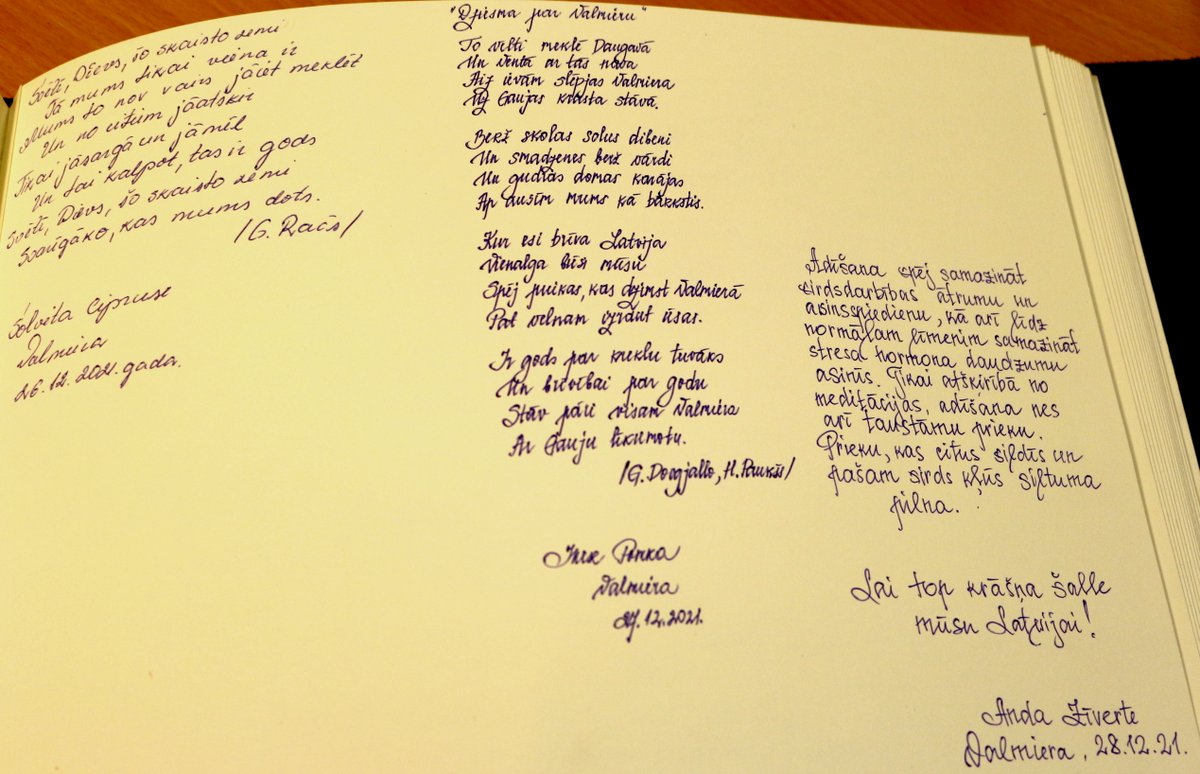 Svētī, Dievs, šo skaisto zemi
Tā mums tikai viena ir
Mums to nav vairs jāiet meklēt
Un no citiem jāatšķir
Tikai jāsargā un jāmīl
Un tai kalpot, tas ir gods
Svētī, Dievs, šo skaisto zemi
Svarīgāko, kas mums dots.
/G. Račs/
Solvita Cipruse
Valmiera
26.12.2021.gada.
"Dziesma par Valmieru"
To velti meklē Daugavā
Un Ventā ar tās nava
Aiz ievām slēpjas Valmiera
Uz Gaujas krasta stāvā.
Berž skolas solus dibeni
Un smadzenes berž vārdi
Un gudras domas karājas
Ap ausīm mums kā bārkstis.
Kur esi brīva Latvija
Vienalga būs mūsu
Spēj puikas, kas dzimst Valmierā
Pat velnam izraut ūsas.
Ir gods par kreklu tuvāks
Un brīvībai par godu
Stāv pāri visam Valmiera
Ar Gauju līkumotu.
/G. Dovgjallo, H. Paukšs/
Ponka
Valmiera
27.12.2021.
Adīšana spēj samazināt
sirdsdarbības ātrumu un
asinsspiedienu, kā arī līdz
normālam līmenim samazināt
stresa hormona daudzumu
asinīs. Tikai atšķirībā no
meditācijas, adīšana nes
arī taustāmu prieku.
Prieku, kas citus sildīs un
pašam sirds kļūs siltuma
pilna.
Lai top krāšņa šalle
mūsu Latvijai!
Anda Zīverte
Valmiera, 28.12.21.